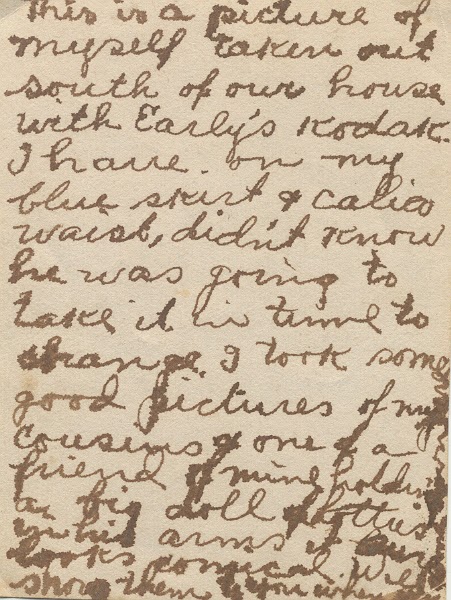 This is a picture of
myself taken out
south of our house
with Early's Kodak.
I have on my
blue skirt & calico
waist, didn't know
he was going to
take it in time to
change. I took some
good pictures of my
cousins & one of a
friend of mine holdin
a big doll
in his arms it
looks comical. Will
show them to you when